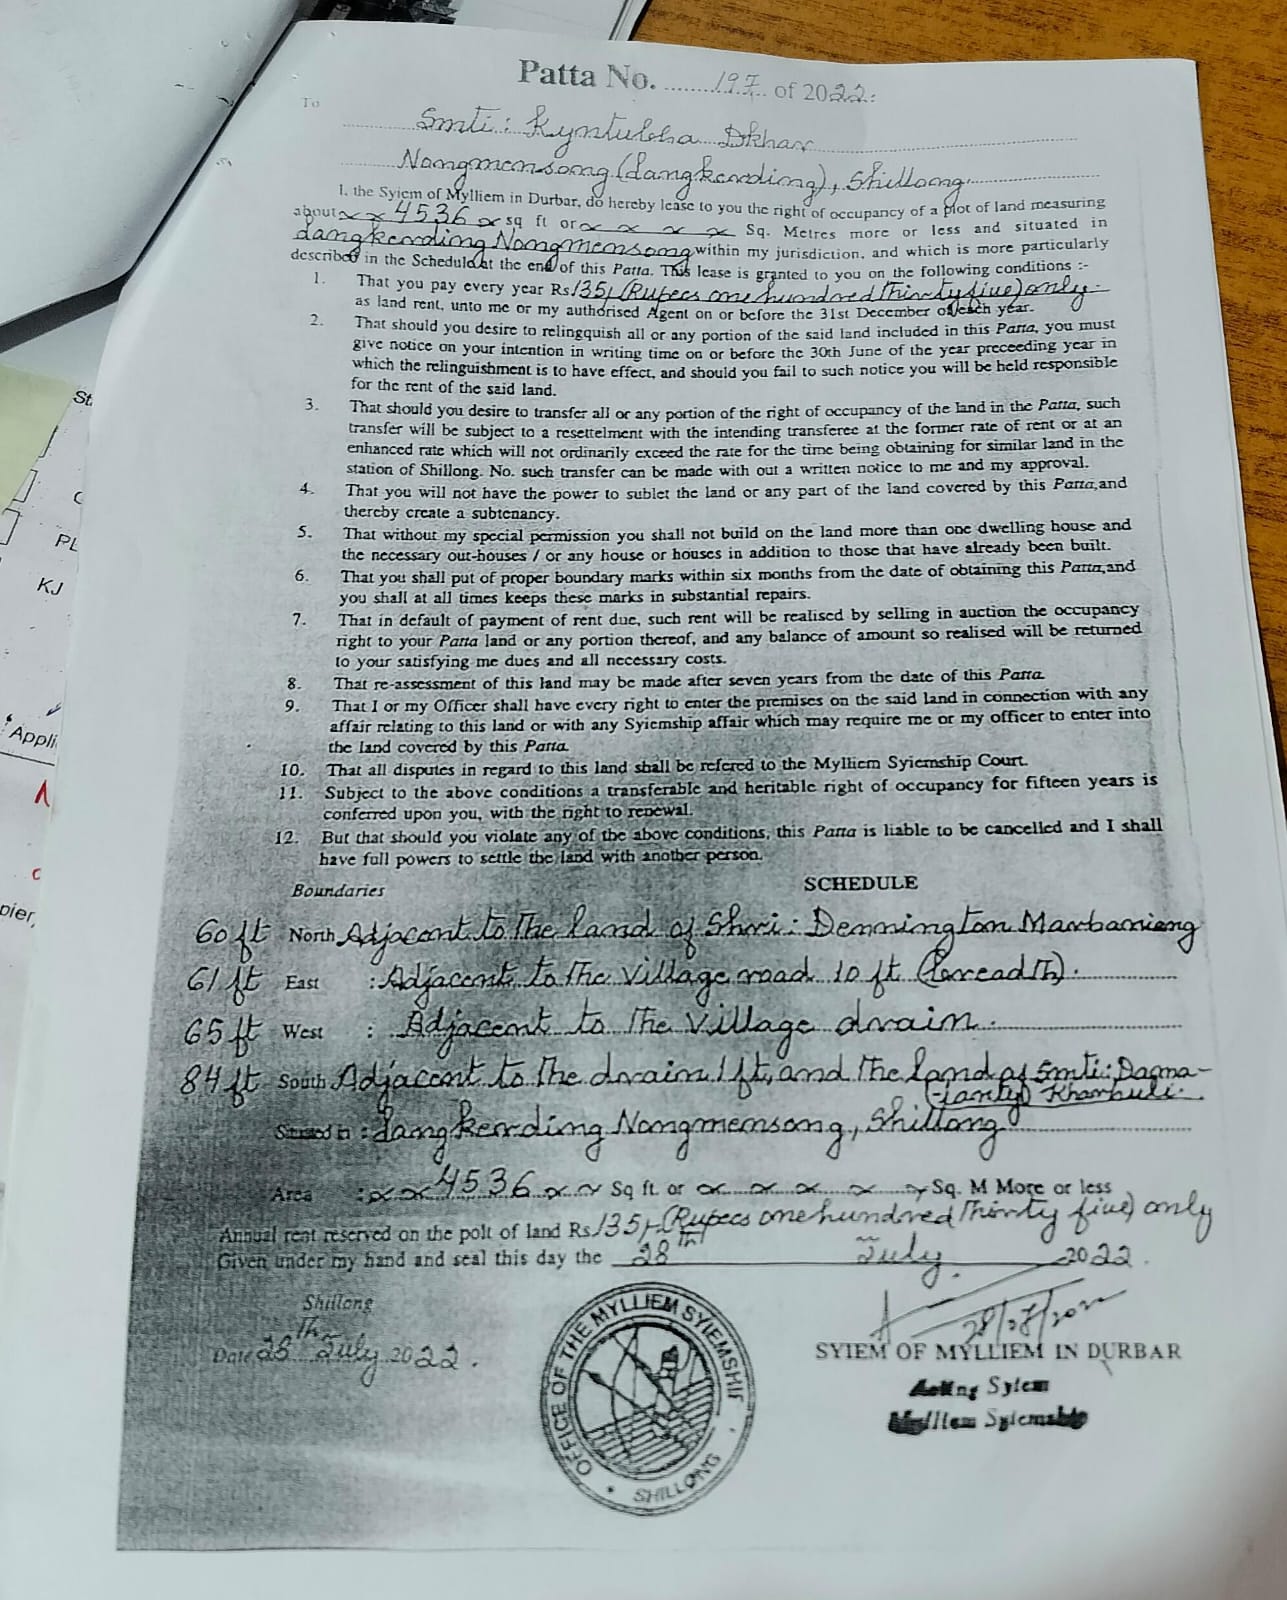 Patta No. ........197.. of 2022:
To
Smti: Kyntulsha Dkhar
Nongmensong (dangkerding), Shillong.
I, the Syiem of Mylliem in Durbar, do hereby lease to you the right of occupancy of a plot of land measuring
about x x 4536 x sq ft or x x x x Sq. Metres more or less and situated in
dangkerding Nongmensong within my jurisdiction, and which is more particularly
described in the Schedule at the end of this Patta. This lease is granted to you on the following conditions :-
1. That you pay every year Rs 135/- (Rupees one hundred Thirty five) only.
as land rent, unto me or my authorised Agent on or before the 31st December of each year.
2. That should you desire to relingquish all or any portion of the said land included in this Patta, you must
give notice on your intention in writing time on or before the 30th June of the year preceeding year in
which the relinguishment is to have effect, and should you fail to such notice you will be held responsible
for the rent of the said land.
3. That should you desire to transfer all or any portion of the right of occupancy of the land in the Patta, such
transfer will be subject to a resettelment with the intending transferee at the former rate of rent or at an
enhanced rate which will not ordinarily exceed the rate for the time being obtaining for similar land in the
station of Shillong. No. such transfer can be made with out a written notice to me and my approval.
4. That you will not have the power to sublet the land or any part of the land covered by this Patta,and
thereby create a subtenancy.
5. That without my special permission you shall not build on the land more than one dwelling house and
the necessary out-houses / or any house or houses in addition to those that have already been built.
6. That you shall put of proper boundary marks within six months from the date of obtaining this Patta,and
you shall at all times keeps these marks in substantial repairs.
7. That in default of payment of rent due, such rent will be realised by selling in auction the occupancy
right to your Patta land or any portion thereof, and any balance of amount so realised will be returned
to your satisfying me dues and all necessary costs.
8. That re-assessment of this land may be made after seven years from the date of this Patta
9. That I or my Officer shall have every right to enter the premises on the said land in connection with any
affair relating to this land or with any Syiemship affair which may require me or my officer to enter into
the land covered by this Patta
10. That all disputes in regard to this land shall be refered to the Mylliem Syiemship Court.
11. Subject to the above conditions a transferable and heritable right of occupancy for fifteen years is
conferred upon you, with the right to renewal.
12. But that should you violate any of the above conditions, this Patta is liable to be cancelled and I shall
have full powers to settle the land with another person.
Boundaries SCHEDULE
60 ft North Adjacent to The land of Shri: Dennington Marbaniang
61 ft East : Adjacent to The Village road 10 ft (breadth).
65 ft West : Adjacent to The Village drain.
84 ft South Adjacent to The drain 1 ft, and The land of Smti: Dama-
-janty) Kharbuli.
Situated in : dangkerding Nongmensong, Shillong
Area : x x 4536 x x Sq ft. or x x x x x Sq. M More or less
Annual rent reserved on the polt of land Rs. 135/- (Rupees one hundred Thirty five) only
Given under my hand and seal this day the 28th July 2022.
Shillong
Date 28th July 2022.
28/07/2022
SYIEM OF MYLLIEM IN DURBAR
Acting Syiem
Mylliem Syiemship
OFFICE OF THE MYLLIEM SYIEMSHIP
SHILLONG
St.
PL
KJ
Appli
pier,